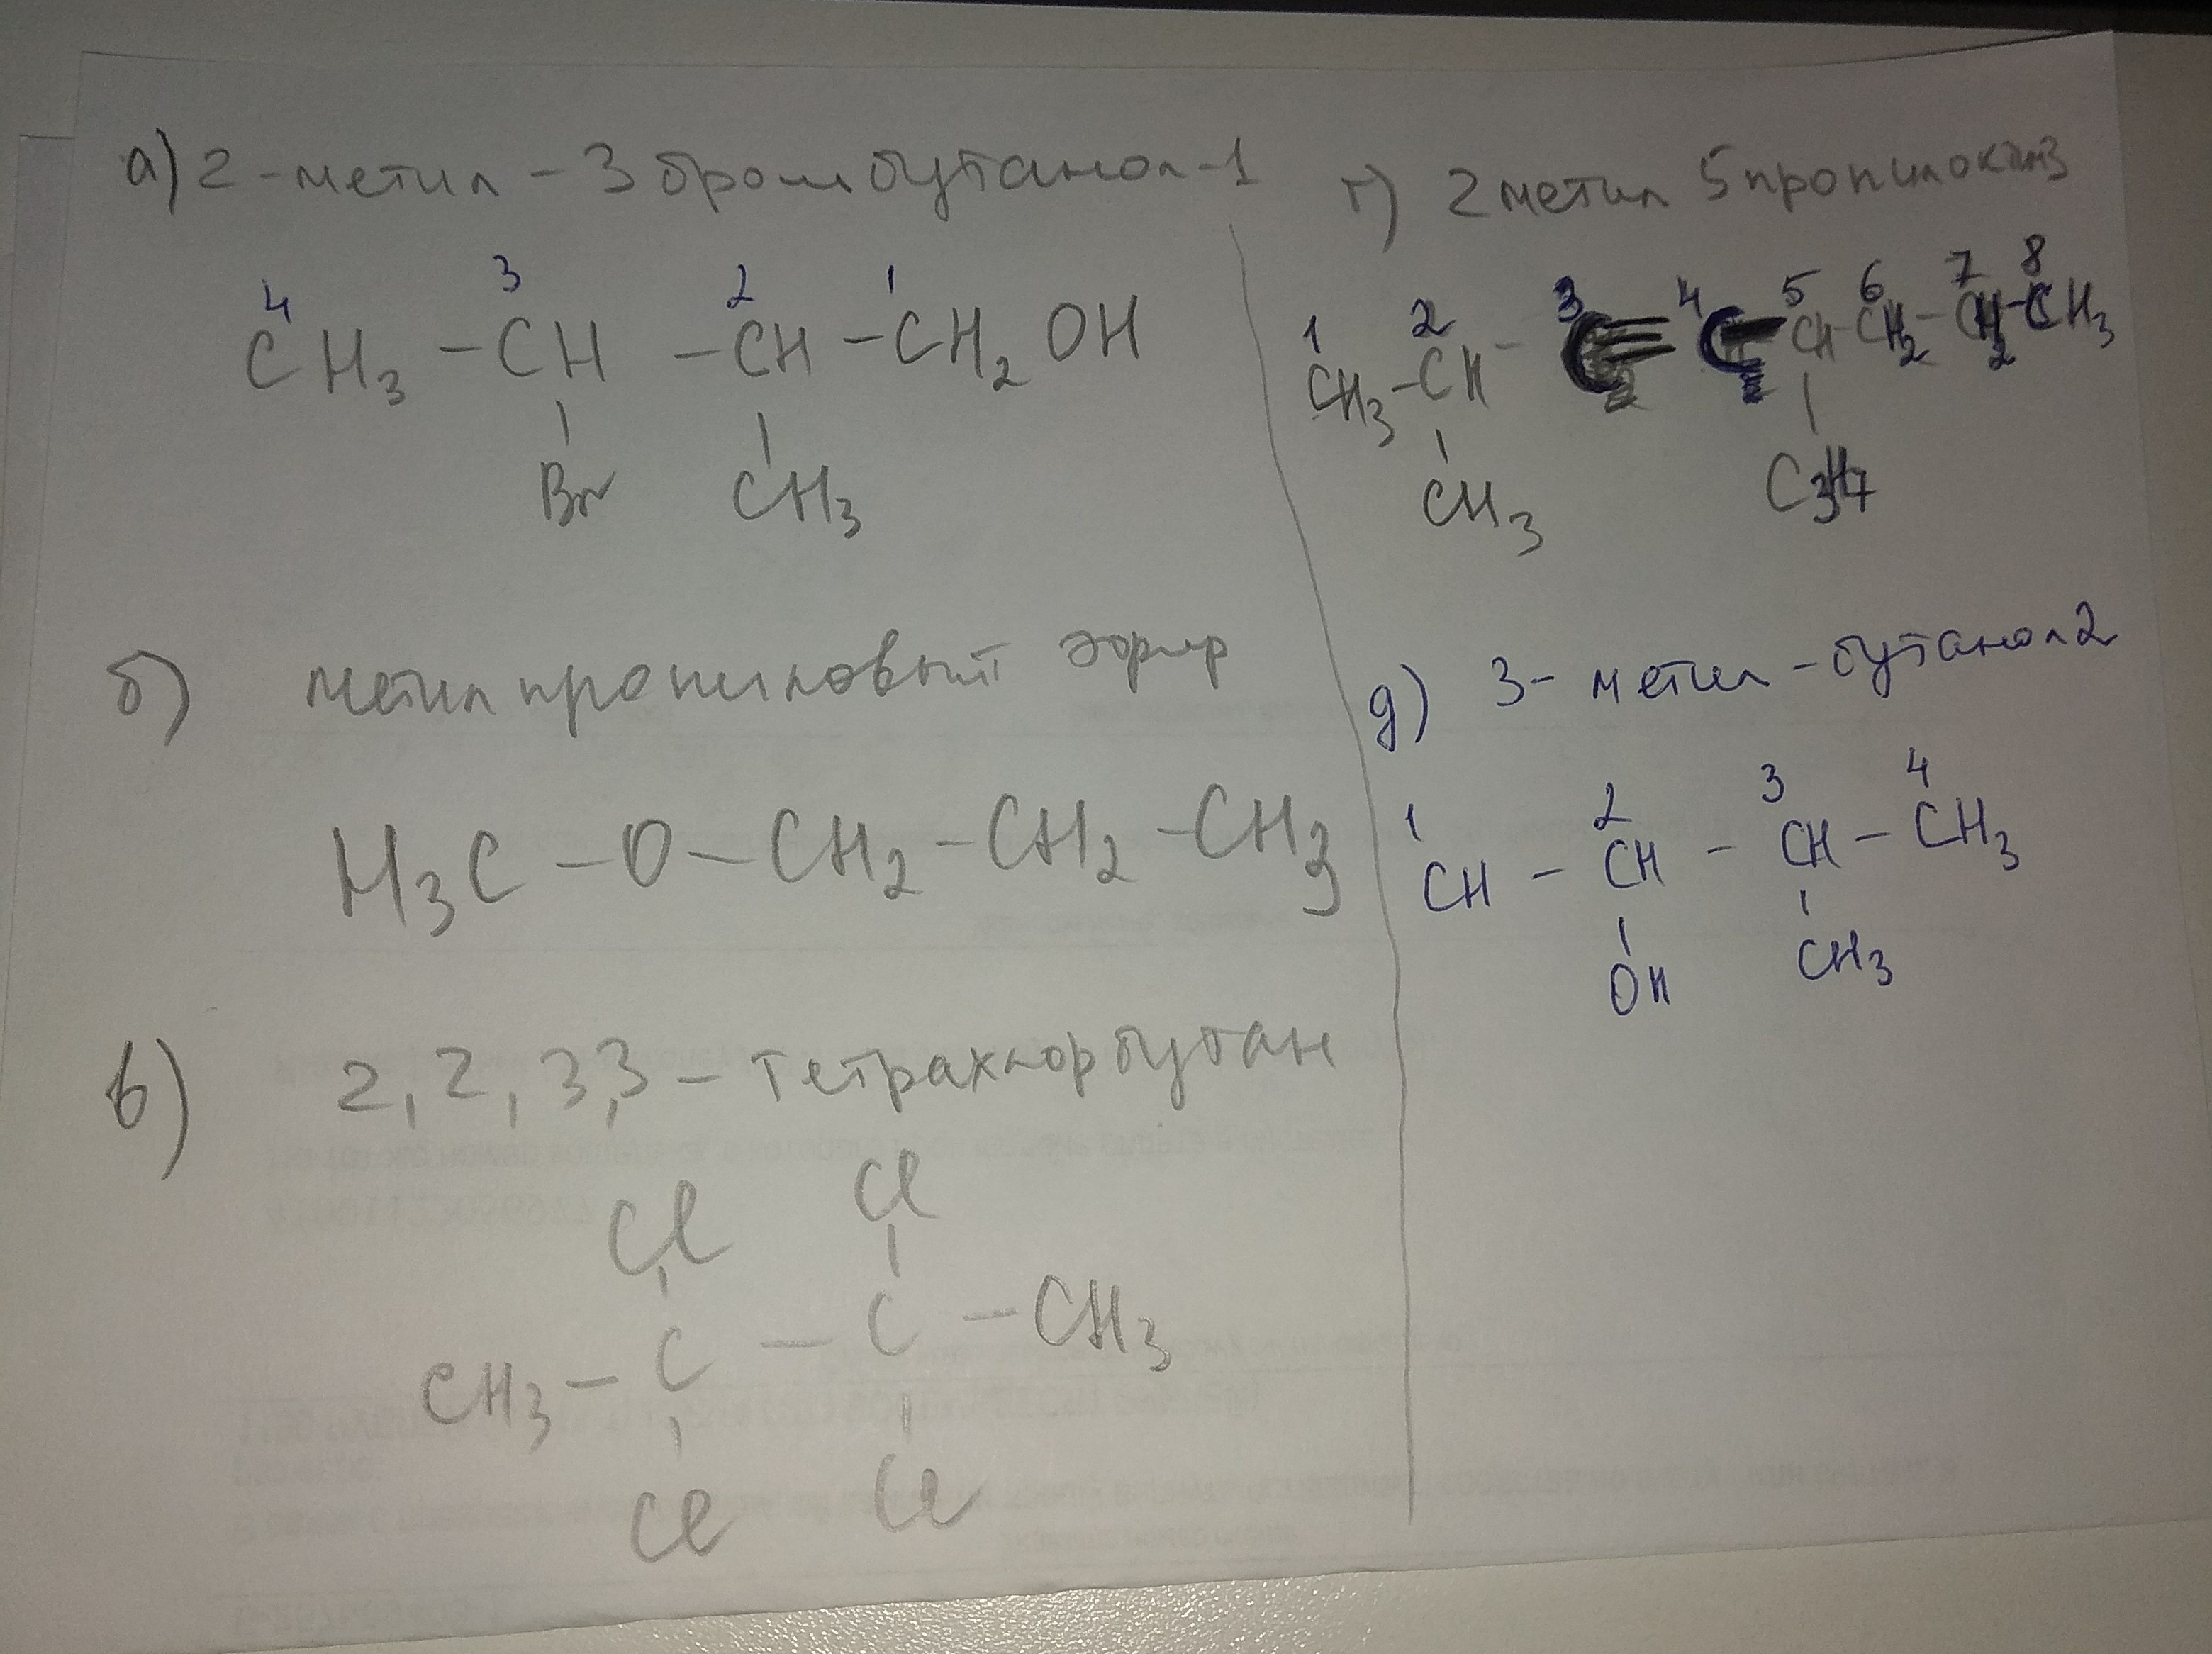 а) 2-метил-3бромбутанол-1
4 3 2 1
CH3-CH-CH-CH2OH
Br CH3
б) метилпропиловый эфир
H3C-O-CH2-CH2-CH3
в) 2,2,3,3-тетрахлорбутан
Cl Cl
CH3-C-C-CH3
Cl Cl
г) 2метил 5пропилоктин3
1 2 3 4 5 6 7 8
CH3-CH-C≡C-CH-CH2-CH2-CH3
CH3 C3H7
д) 3-метил-бутанол2
1 2 3 4
CH-CH-CH-CH3
OH CH3